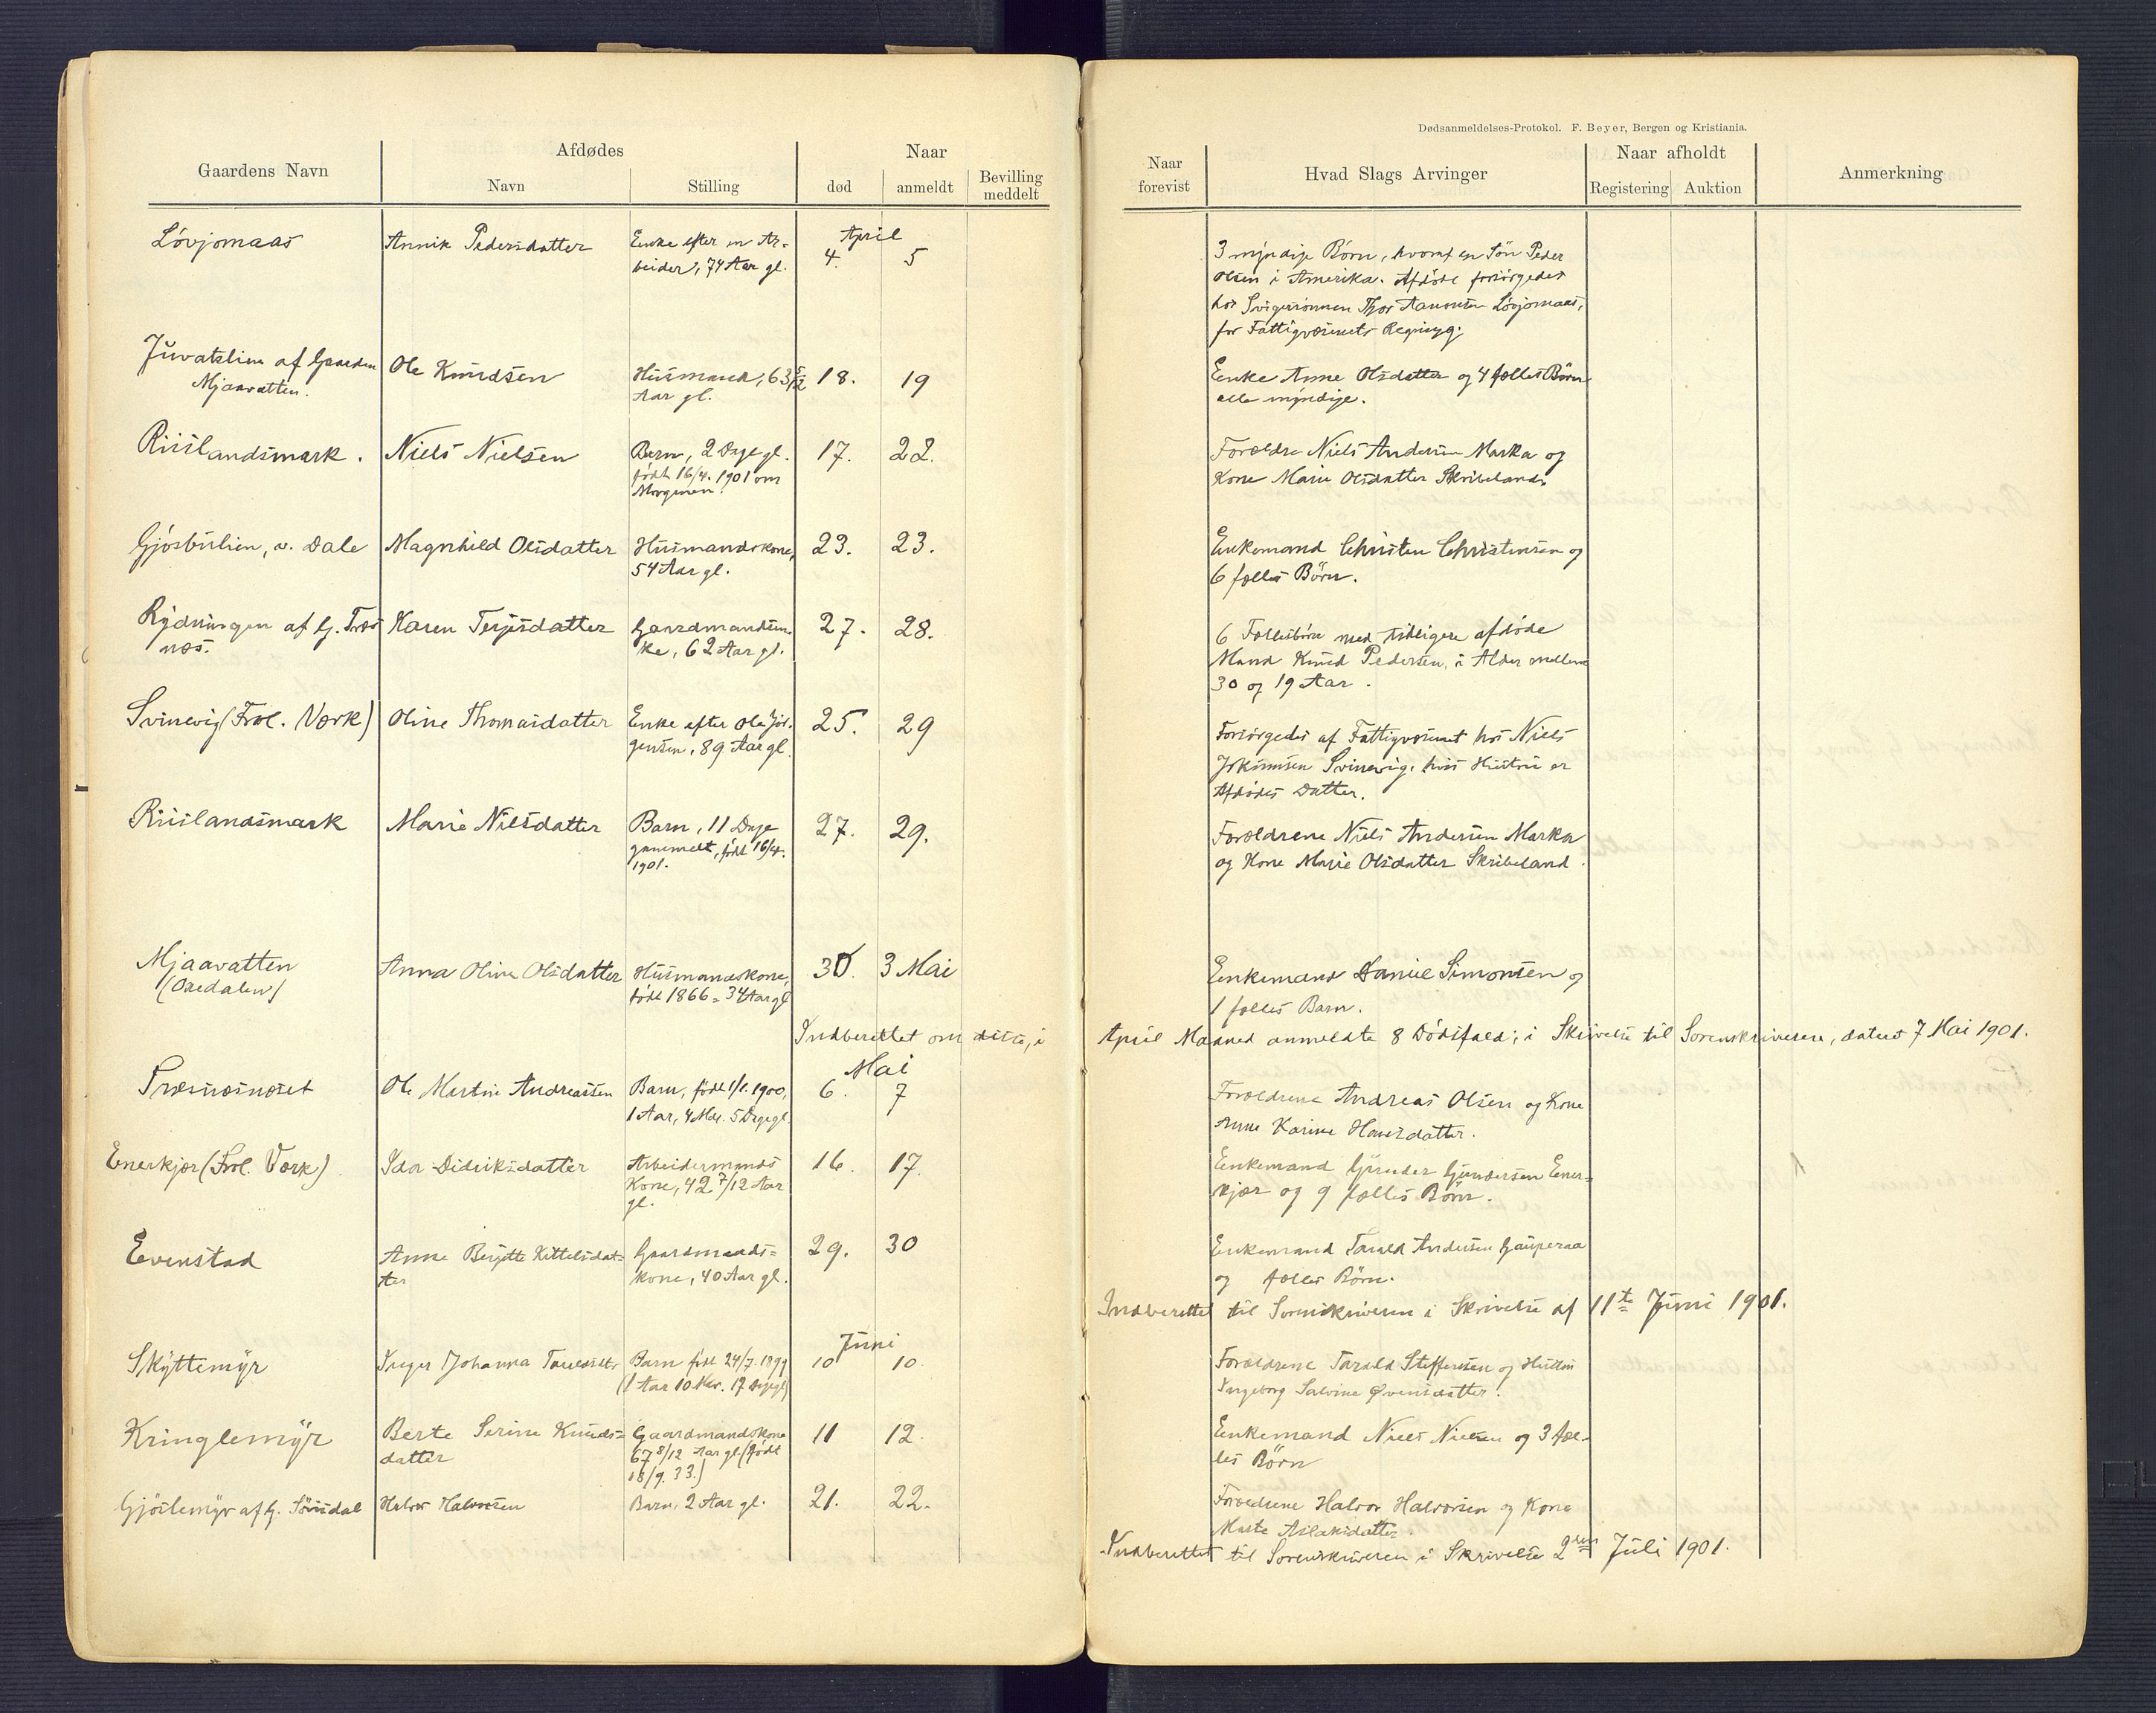 Dødsanmeldelses-Protokol. F. Beyer, Bergen og Kristiania.
Gaardens Navn
Afdødes
Navn
Stilling
Naar
død
anmeldt
Bevilling
meddelt
Naar
forevist
Hvad Slags Arvinger
Naar afholdt
Registering
Auktion
Anmerkning
April
Lövjomaas
Annik Pedersdatter
Enke efter en Ar-
beider, 74 Aar gl.
4.
5
3 myndige Börn, hvoraf en Sön Peder
Olsen i Amerika. Afdöde forsörgedes
hos Svigersönnen Thor Aanonsen Lövjomaas,
for Fattigvæsenets Regning.
Juvatslien af Gaarden
Mjaavatten.
Ole Knudsen
Husmand, 63 5/12
Aar gl.
18.
19
Enke Anne Olsdatter og 4 fælles Börn
alle myndige.
Riislandsmark.
Niels Nielsen
Barn, 2 Dage gl.
födt 16/4. 1901 om
Morgenen.
17.
22.
Forældre Niels Andersen Marka og
Kone Marie Olsdatter Skribeland.
Gjösbulien, v. Dale
Magnhild Olsdatter
Husmandskone,
54 Aar gl.
23.
23.
Enkemand Christen Christensen og
6 fælles Börn.
Rydningen af G. Træs
næs.
Karen Terjesdatter
Gaardmandsen-
ke, 62 Aar gl.
27.
28.
6 Fællesbörn med tidligere afdöde
Mand Knud Pedersen, i Alder mellem
30 og 19 Aar.
Svinevig (Frol. Værk)
Oline Thomasdatter
Enke efter Ole Jör-
gensen, 89 Aar gl.
25.
29
Forsörgedes af Fattigvæsenet hos Niels
Jokumsen Svinevig, hvis Hustru er
Afdödes Datter.
Riislandsmark
Marie Nilsdatter
Barn, 11 Dage
gammelt, födt 16/4.
1901.
27.
29.
Forældrene Niels Andersen Marka
og Kone Marie Olsdatter Skribeland.
Mjaavatten
Anna Oline Olsdatter
Husmandskone,
födt 1866 = 34 Aar gl
30.
3 Mai
Enkemand Daniel Simonsen og
1 fælles Barn.
Indberettet om disse, i April Maaned anmeldte 8 Dödsfald, i Skrivelse til Sorenskriveren, dateret 7 Mai 1901.
Mai
Træsnæsnæset
Ole Martin Andreassen
Barn, födt 1/1. 1900,
1 Aar, 4 Mdr. 5 Dage gl.
6.
7
Forældrene Andreas Olsen og Kone
Anne Karine Hansdatter.
Enerkjær (Frol. Værk)
Ida Didriksdatter
Arbeidermands
Kone, 42 7/12 Aar
gl.
16.
17.
Enkemand Gunder Gundersen Ener-
kjær og 9 fælles Börn.
Evenstad
Anne Bergitte Kittelsdat-
ter
Gaardmands-
kone, 40 Aar gl.
29.
30
Enkemand Tarald Andersen Gauperaa
og fælles Börn.
Indberettet til Sorenskriveren i Skrivelse af 11te Juni 1901.
Juni
Skyttemyr
Inger Johanna Taraldsdtr
Barn födt 24/7. 1899
(1 Aar 10 Mdr. 17 Dage gl)
10
10.
Forældrene Tarald Steffensen og Hustru
Ingeborg Salvine Øvensdatter.
Kringlemyr
Berte Serine Knuds-
datter
Gaardmandskone
67 8/12 Aar gl. (födt
18/9. 33.)
11
12.
Enkemand Niels Nielsen og 3 fæl-
les Börn
Gjöslemyr af G. Sövsdal
Halvor Halvorsen
Barn, 2 Aar gl.
21.
22.
Forældrene Halvor Halvorsen og Kone
Marte Aslaksdatter.
Indberettet til Sorenskriveren i Skrivelse 2den Juli 1901.